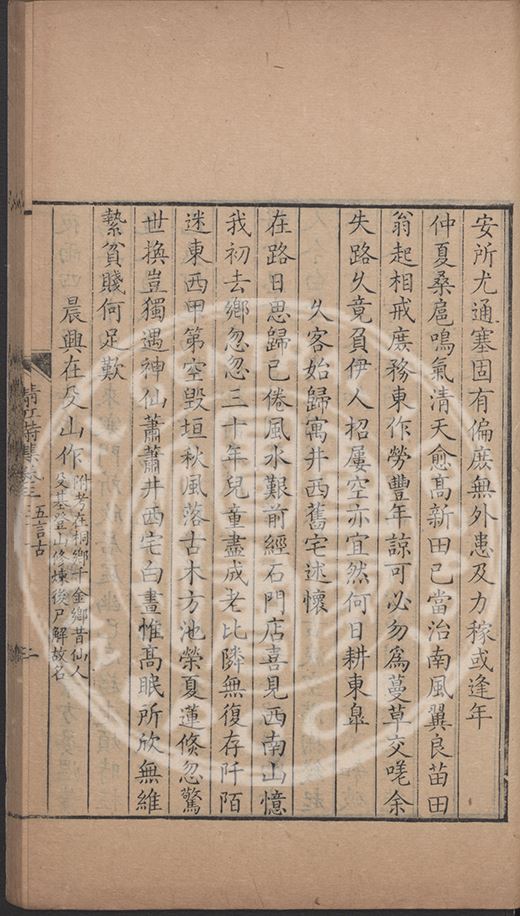 安所尤通塞固有偏庶無外患及力稼或逢年
仲夏桑扈鳴氣清天愈高新田已當治南風翼良苗田
翁起相戒庶務東作勞豐年諒可必勿為蔓草交嗟余
失路久竟負伊人招屢空亦宜然何日耕東臯
久客始歸寓井西舊宅述懷
在路日思歸已倦風水艱前經石門店喜見西南山憶
我初去鄉忽忽三十年兒童盡成老比隣無復存阡陌
迷東西甲第空毁垣秋風落古木方池榮夏蓮倏忽驚
世換豈獨遇神仙蕭蕭井西宅白晝惟高眠所欣無維
縶貧賤何足歎
晨興在及山作附考在桐鄉千金鄉昔仙人
及其登山修煉後尸解故名
清江詩集卷三 五言古 二